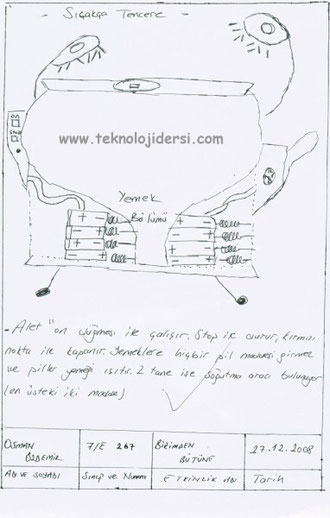 - Sıcakça Tencere -
www.teknolojidersi.com
Yemek
Bölümü
- Alet "on düğmesi ile çalışır. Stop ile durur, kırmızı
nokta ile kapanır. Yemeklere hiçbir pil maddesi girmez
ve piller yemeği ısıtır. 2 tane ise soğutma aracı bulunuyor
(en üsteki iki madde)
OSMAN ÖZDEMİR
7/E 267
BİRİMDEN BÜTÜNE
27.12.2008
ADI VE SOYADI
Sınıf ve Numara
ETKİNLİK ADI
Tarih